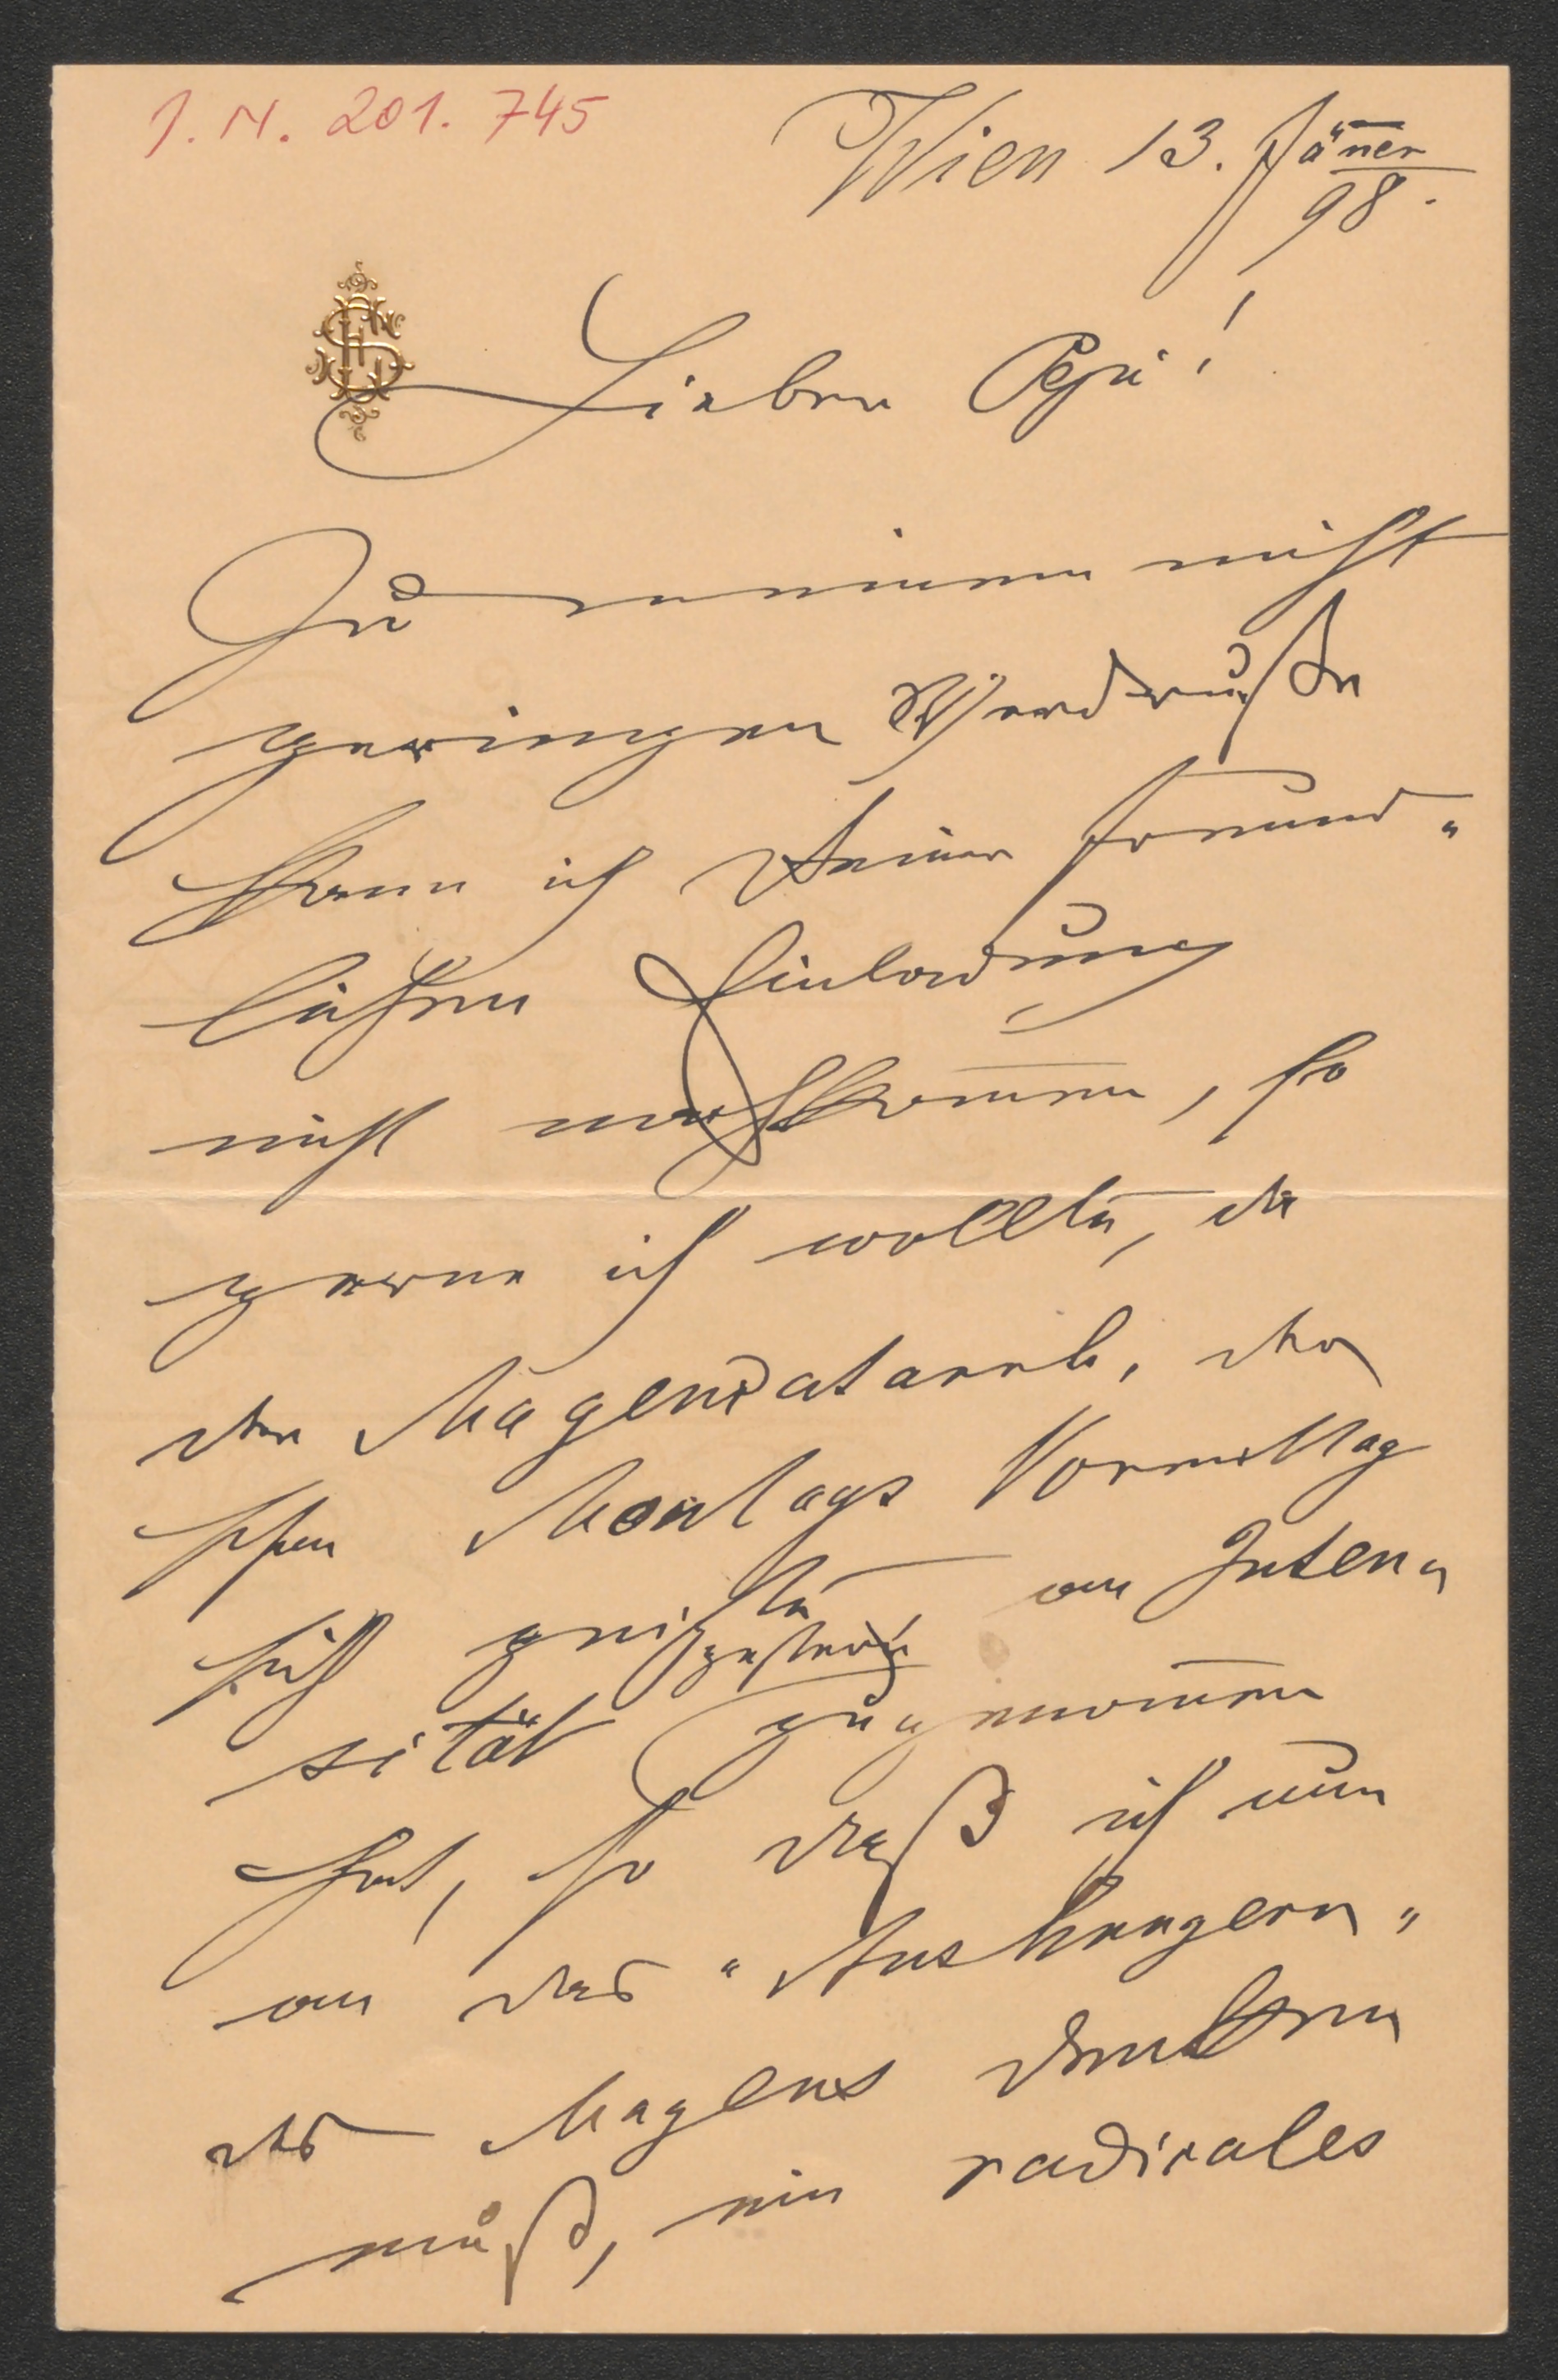 I. N. 201. 745
Wien 13. Jän̄er
98.
Lieber Pepi!
Zu meinem nicht
geringen Verdruße
kann ich Deiner freund-
lichen Einladung
nicht nachkom̄en, so
gerne ich wollte, da
der Magencatarrh, der
schon Montags Vormittag
sich zeigte an Inten-
gestern
sität zugenom̄en
hat, so daß ich nun
an das "Aushungern"
des Magens denken
muß, ein radicales